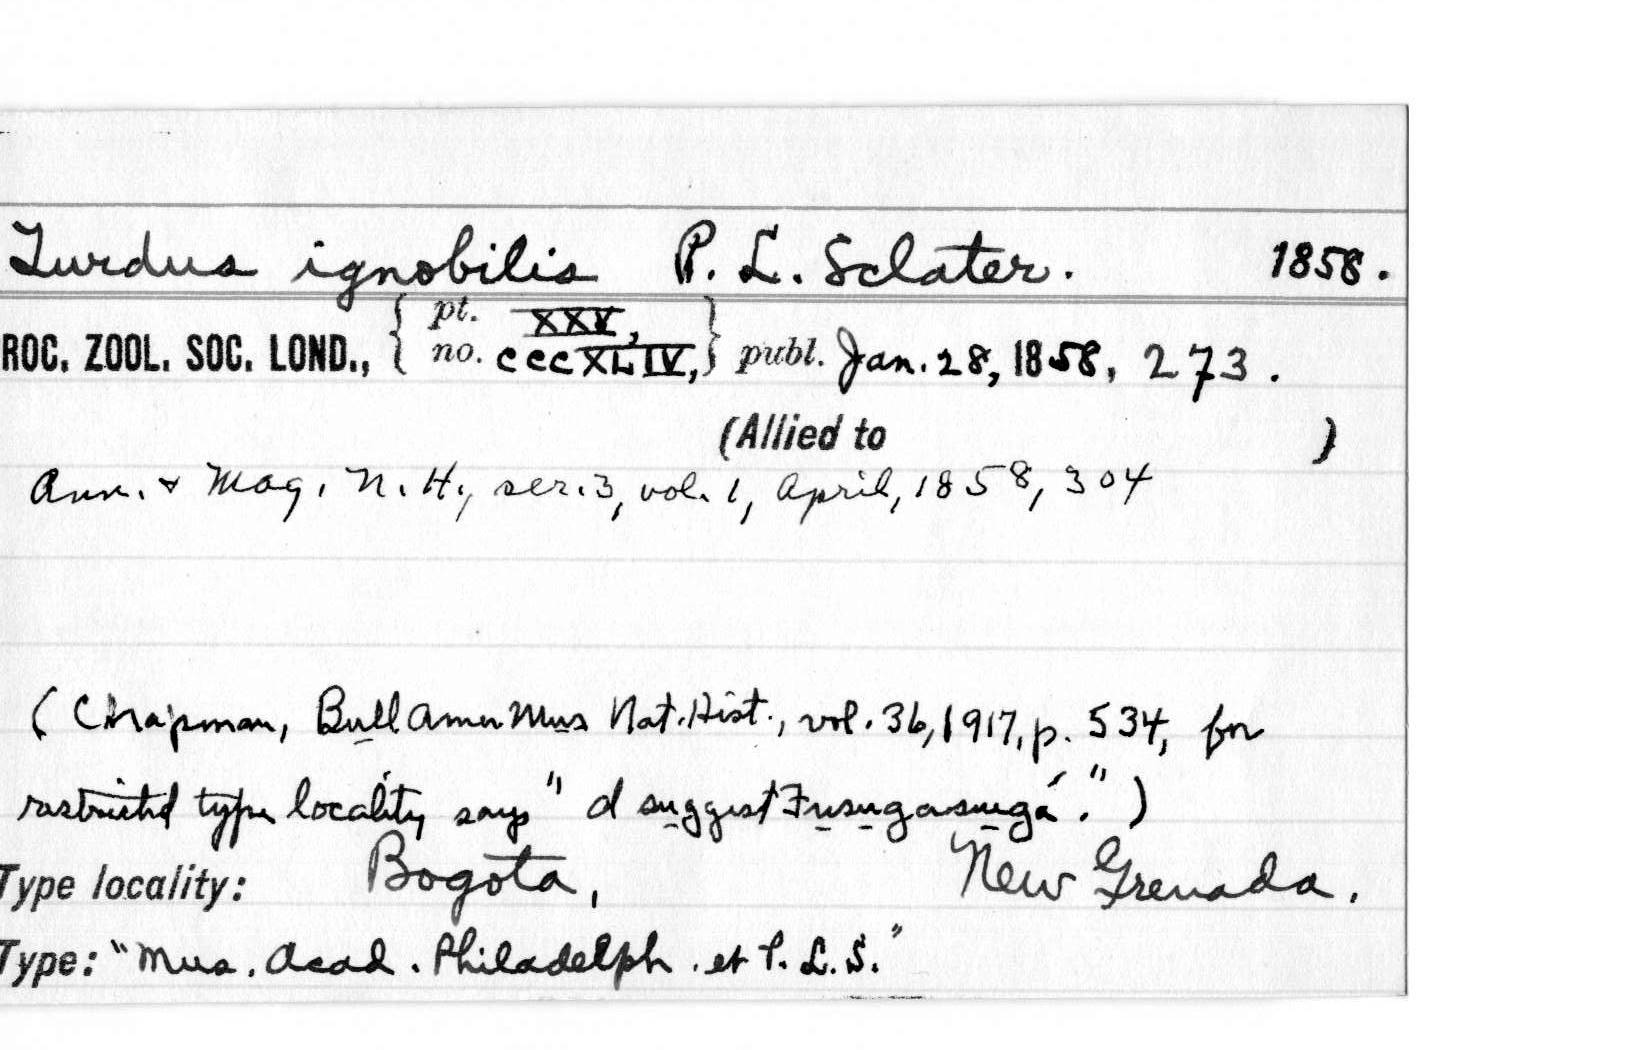 Turdus ignobilis P. L. Sclater. 1858.
ROC. ZOOL. SOC. LOND., { pt. XXV, no. CCCXLIV, } publ. Jan. 28, 1858, 273.
(Allied to )
Ann. & Mag. N. H., ser. 3, vol. 1, April, 1858, 304
(Chapman, Bull Amer Mus Nat. Hist., vol. 36, 1917, p. 534, for
restricted type locality says "I suggest Fusugasugá.")
Type locality: Bogota, New Grenada.
Type: "Mus. Acad. Philadelph. et P. L. S."